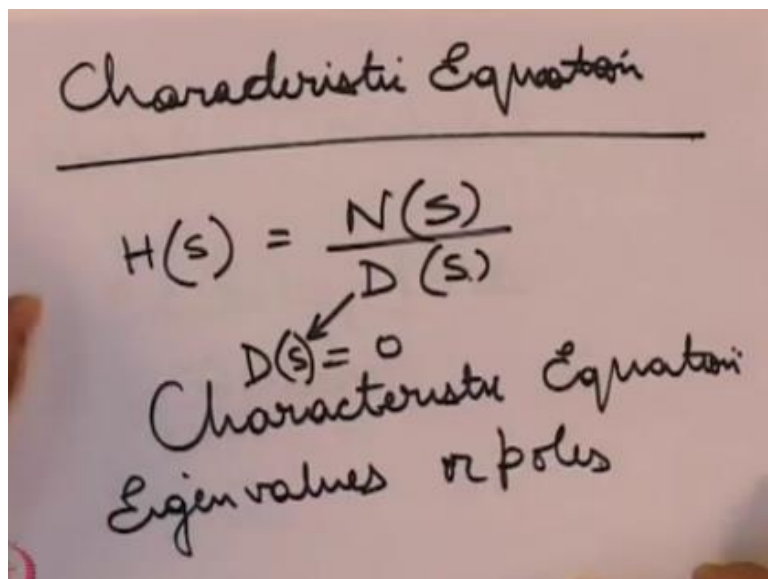 Characteristic Equation
H(s) = N(s) / D(s)
D(s) = 0
Characteristic Equation
Eigenvalues or poles